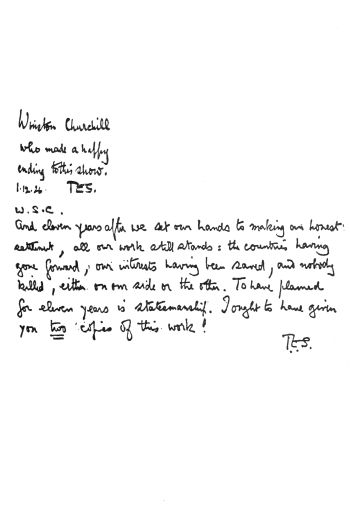 Winston Churchill
who made a happy
ending to this show.
1.12.26 TES.
W.S.C.
And eleven years after we set our hands to making an honest
settlement, all our work still stands: the countries having
gone forward, our interests having been saved, and nobody
killed, either on our side or the other. To have planned
for eleven years is statesmanship. I ought to have given
you two copies of this work!
TES.